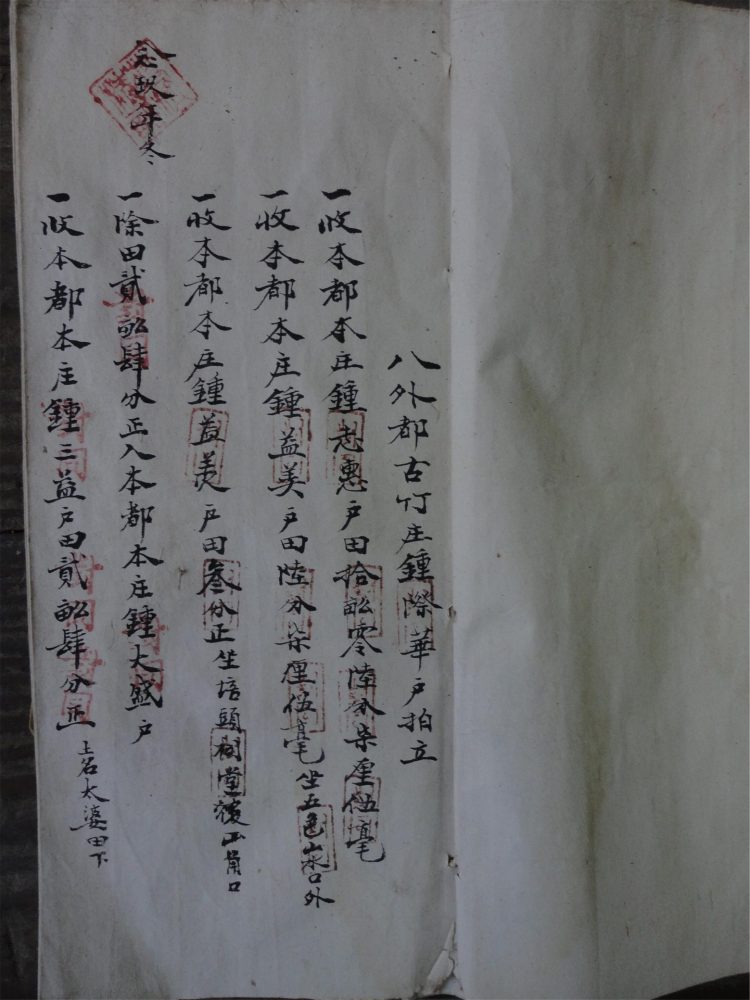 八外都古竹庄鍾際華戶拍立
一收本都本庄鍾志惠戶田拾畝零陸分柒厘伍毫
一收本都本庄鍾益美戶田陸分柒厘伍毫坐五色山水口外
一收本都本庄鍾益美戶田叁分正坐培頭樹堂後山角口
玖年冬
一除田貳畝肆分正入本都本庄鍾大盛戶
一收本都本庄鍾三益戶田貳畝肆分正土名太婆田下